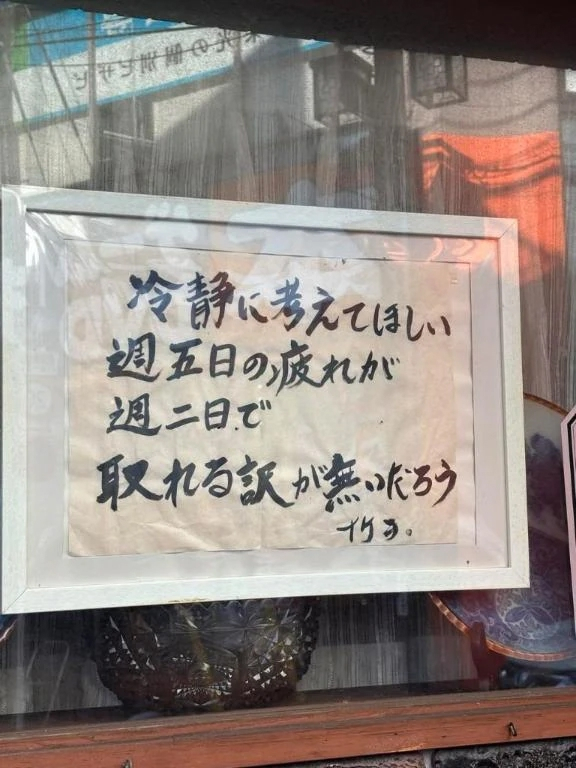 冷静に考えてほしい
週五日の疲れが
週二日で
取れる訳が無いだろう